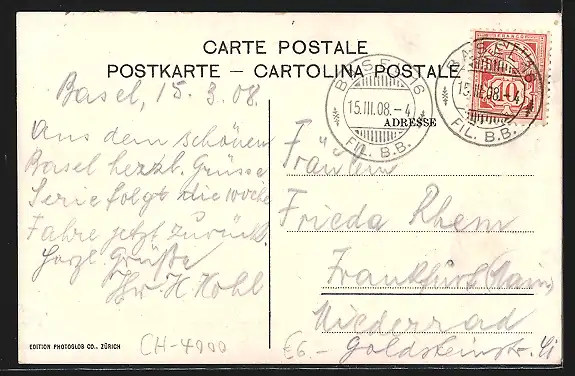 CARTE POSTALE
POSTKARTE – CARTOLINA POSTALE
ADRESSE
BASEL 6
15.III.08.-4
FIL. B.B.
BASEL 6
15.III.08.-4
FIL. B.B.
FRANCO
10
Basel, 15. 3. 08.
Aus dem schönen
Basel herzl. Grüsse
Serie folgt die Woche
Fahre jetzt zurück.
Herzl. Grüße
Ihr H. Kohl
Fräulein
Frieda Rhem
Frankfurt (Main)
Niederrad
Goldsteinstr.
EDITION PHOTOGLOB CO., ZÜRICH
CH-4000
€6.-